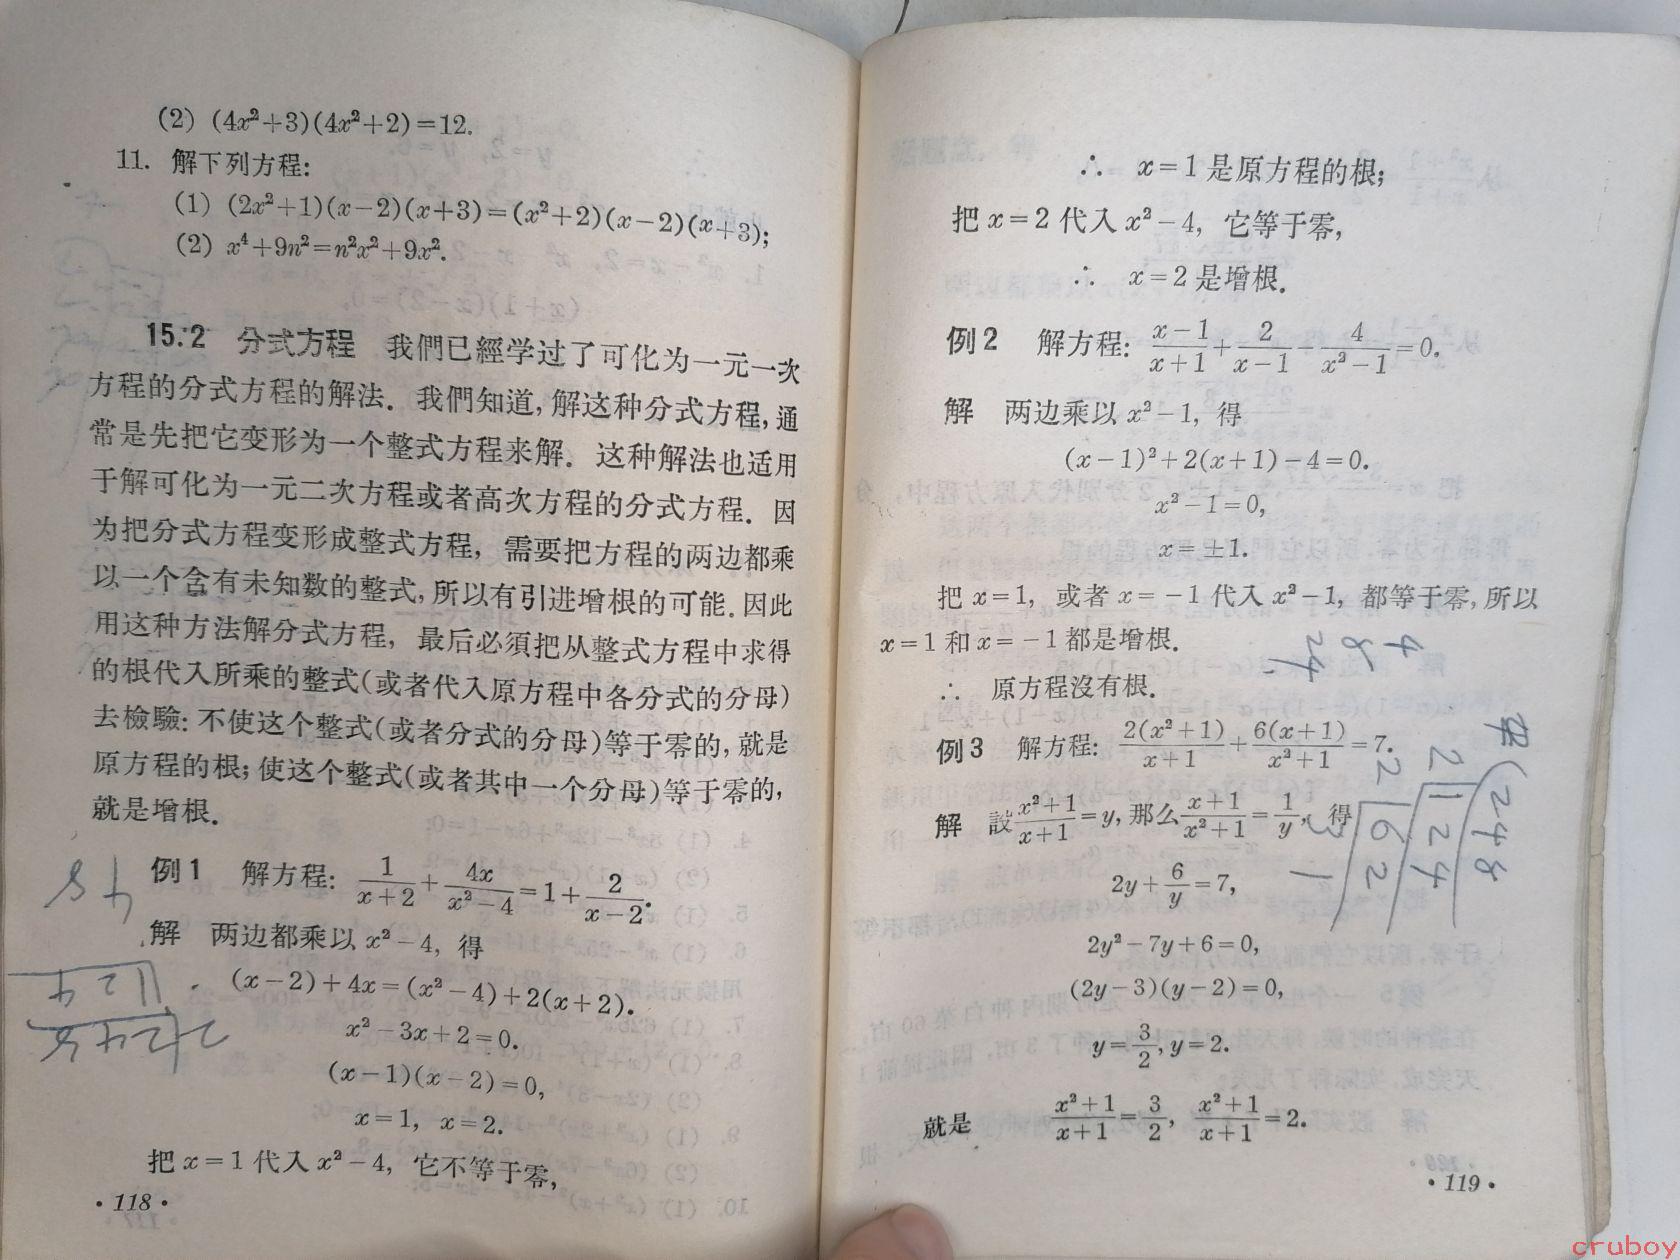 (2) (4x²+3)(4x²+2)=12.
11. 解下列方程:
(1) (2x²+1)(x-2)(x+3)=(x²+2)(x-2)(x+3);
(2) x⁴+9n²=n²x²+9x².
15.2 分式方程 我們已經学过了可化为一元一次
方程的分式方程的解法. 我們知道, 解这种分式方程, 通
常是先把它变形为一个整式方程来解. 这种解法也适用
于解可化为一元二次方程或者高次方程的分式方程. 因
为把分式方程变形成整式方程, 需要把方程的两边都乘
以一个含有未知数的整式, 所以有引进增根的可能. 因此
用这种方法解分式方程, 最后必須把从整式方程中求得
的根代入所乘的整式(或者代入原方程中各分式的分母)
去檢驗: 不使这个整式(或者分式的分母)等于零的, 就是
原方程的根; 使这个整式(或者其中一个分母)等于零的,
就是增根.
例1 解方程: 1/(x+2)+4x/(x²-4)=1+2/(x-2).
解 两边都乘以 x²-4, 得
(x-2)+4x=(x²-4)+2(x+2).
x²-3x+2=0.
(x-1)(x-2)=0,
x=1, x=2.
把 x=1 代入 x²-4, 它不等于零,
·118·
∴ x=1 是原方程的根;
把 x=2 代入 x²-4, 它等于零,
∴ x=2 是增根.
例2 解方程: (x-1)/(x+1)+2/(x-1)-4/(x²-1)=0.
解 两边乘以 x²-1, 得
(x-1)²+2(x+1)-4=0.
x²-1=0,
x=±1.
把 x=1, 或者 x=-1 代入 x²-1, 都等于零, 所以
x=1 和 x=-1 都是增根.
∴ 原方程沒有根.
例3 解方程: 2(x²+1)/(x+1)+6(x+1)/(x²+1)=7.
解 設 (x²+1)/(x+1)=y, 那么 (x+1)/(x²+1)=1/y, 得
2y+6/y=7,
2y²-7y+6=0,
(2y-3)(y-2)=0,
y=3/2, y=2.
就是 (x²+1)/(x+1)=3/2, (x²+1)/(x+1)=2.
·119·
4 8
24
2 248
2 124
62
31
cruboy